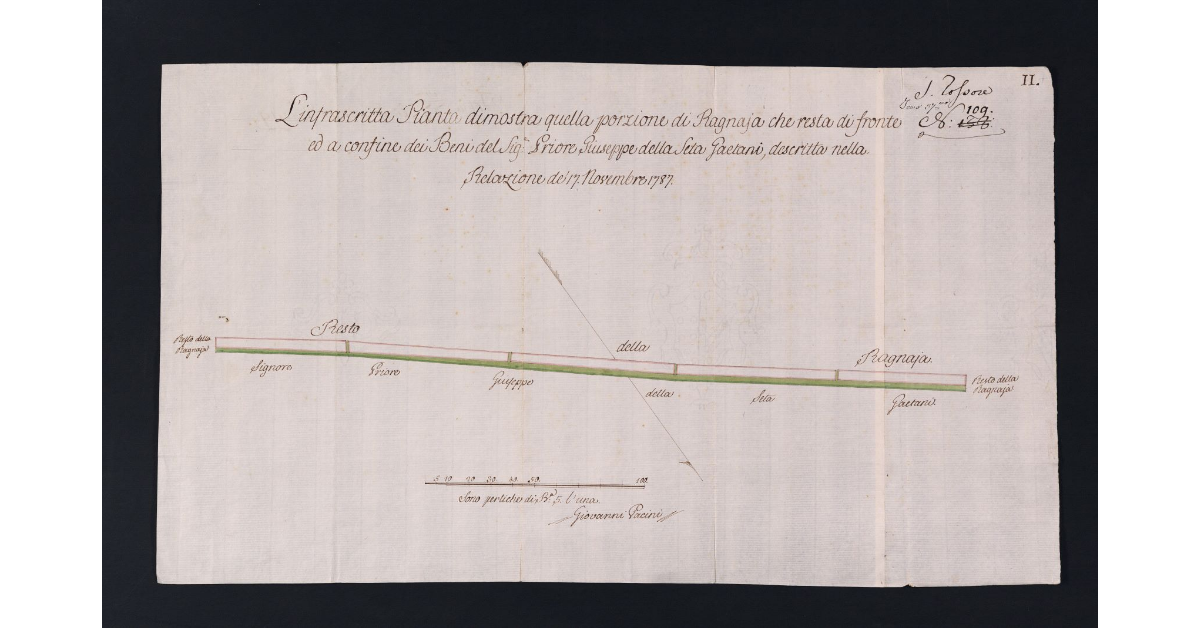 II.
109.
L'infrascritta Pianta dimostra quella porzione di Ragnaja che resta di fronte
ed a confine dei Beni del Sig.r Priore Giuseppe della Seta Gaetani, descritta nella
Relazione de' 17. Novembre 1787.
Resto della Ragnaja.
Resto della
Ragnaja
Resto della
Ragnaja
Signore Priore Giuseppe della Seta Gaetani.
5 10. 20. 30. 40. 50. 100.
Sono pertiche di B.a 5. l'una.
Giovanni Pacini